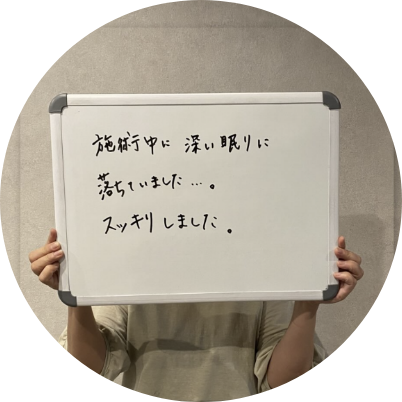 施術中に 深い眠りに
落ちていました…。
スッキリしました。